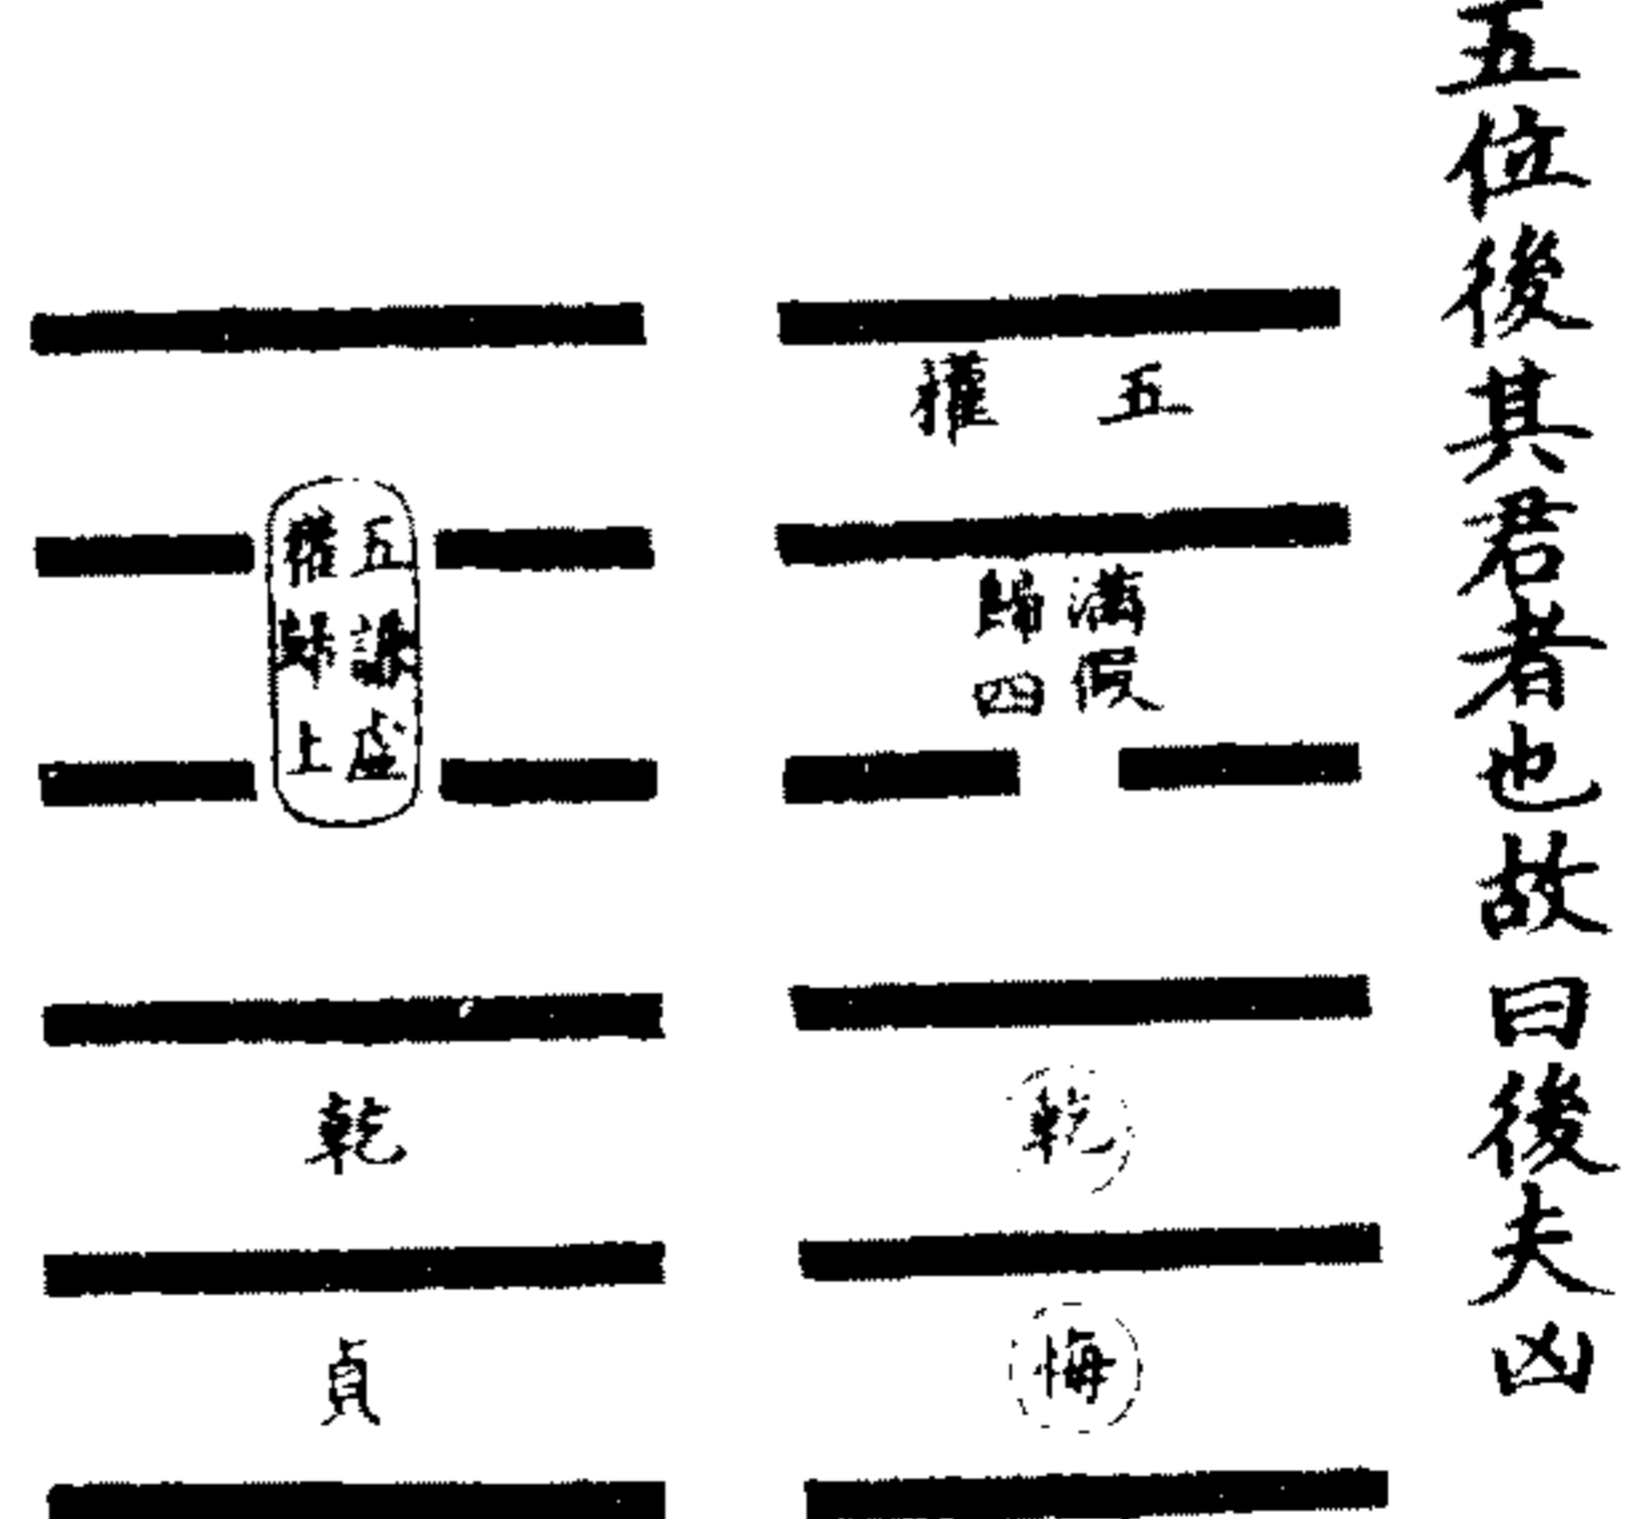 五位後其君者也故曰後夫凶
五權
滿假
歸四
乾
悔
五謙虛
權歸上
乾
貞